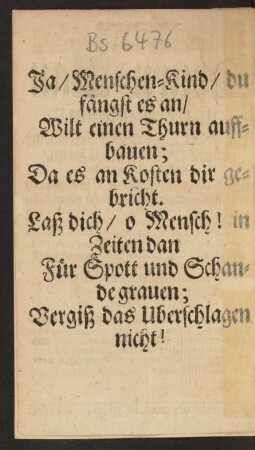 Bs 6476
Ja/ Menschen-Kind/ du
fångst es an/
Wilt einen Thurn auff-
bauen;
Da es an Kosten dir ge-
bricht.
Laß dich/ o Mensch! in
Zeiten dan
Für Spott und Schan-
de grauen;
Vergiß das Uberschlagen
nicht!